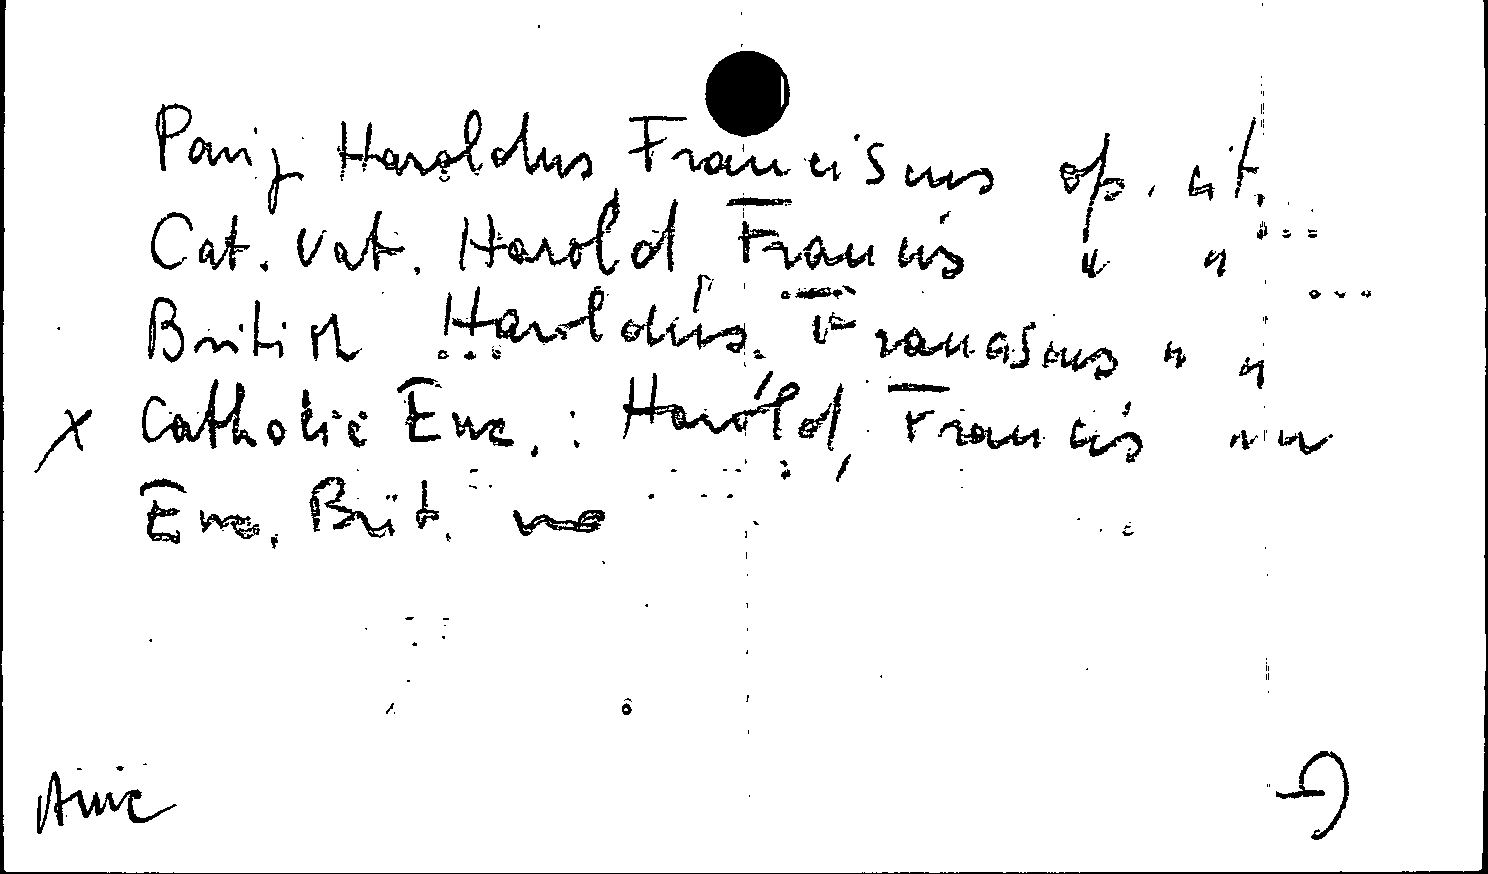 Pariz Haroldus Franciscus op. cit.
Cat. Vat. Harold, Francis " "
British Haroldus, Franciscus " "
x Catholic Enc. : Harold, Francis " "
Enc. Brit. no